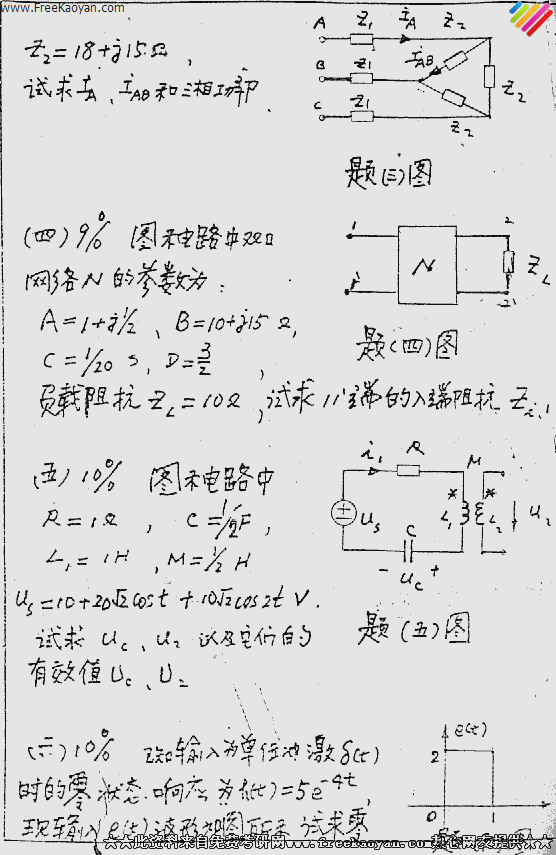 www.FreeKaoyan.com
Z₂=18+j15Ω,
试求İA、İAB和三相功率P.
A Z₁ İA Z₂
B Z₁ İAB Z₂
C Z₁ Z₂
题(三)图
(四) 9% 图示电路中双口
网络N的参数为:
A=1+j½、B=10+j15 Ω,
C=1/20 S、D=3/2,
负载阻抗 ZL=10Ω,试求11'端的入端阻抗Zi.
1 2
N ZL
1' 2'
题(四)图
(五) 10% 图示电路中
R=1Ω, C=½F,
L₁=1H, M=½H
us=10+20√2cost+10√2cos2t V.
试求uc、u₂以及它们的
有效值Uc、U₂
i₁ R M
us L₁ * * L₂ u₂
C
- uc +
题(五)图
(六) 10% 已知输入为单位冲激δ(t)
时的零状态响应为h(t)=5e^-4t,
现输入e(t)波形如图所示 试求零
e(t)
2
0 1
大大此资料来自免费考研网www.freekaoyan.com